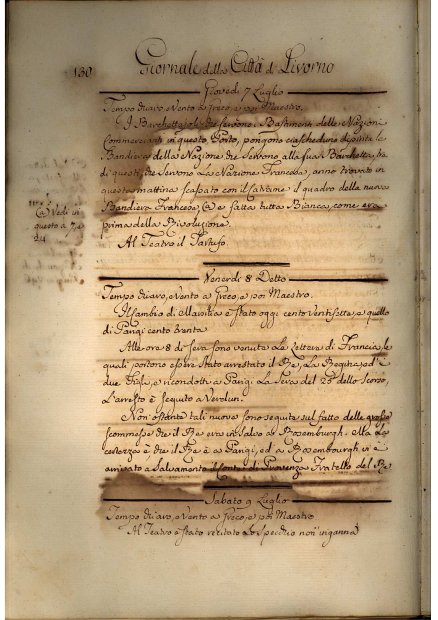 130
Giornale della Città di Livorno
Giovedì 7 Luglio
Tempo chiaro, e Vento a Greco, e poi Maestro.
I Barchettajoli che servono i Bastimenti delle Nazioni
Commercianti in questo Porto, pongono ciascheduno dipinta la
Bandiera della Nazione che servono alla sua Barchetta, tra
di questi che servono La Nazione Francese, anno trovato in
questa mattina scassato con il il quadro della nuova
Bandiera Francese, e fatta tutta Bianca, come era
prima della Rivoluzione.
Al Teatro il Tartufo.
Vedi in
questo a
24
Venerdì 8 Detto
Tempo chiaro, e Vento a Greco, e poi Maestro.
Il Cambio di Marsilia è stato oggi cento ventisette, e quello
di Parigi cento trenta.
Alle ore 8 di sera sono venute Le Lettere di Francia, le
quali portono essere stato arrestato il Re, La Regina, ed i
due Figli, e ricondotti a Parigi La Sera del 25 dello Scorso,
L'arresto è seguito a Verdun.
Non ostante tali nuove sono seguite sul fatto delle grosse
scommesse che il Re era in salvo a Bosemburgh. Ma La
certezza è che il Re è a Parigi, ed a Bosembourgh vi è
arrivato a Salvamento il Conte di Provenza Fratello del Re
Sabato 9 Luglio
Tempo chiaro, e Vento a Greco, e poi Maestro
Al Teatro è stato recitato Lo Specchio non inganna